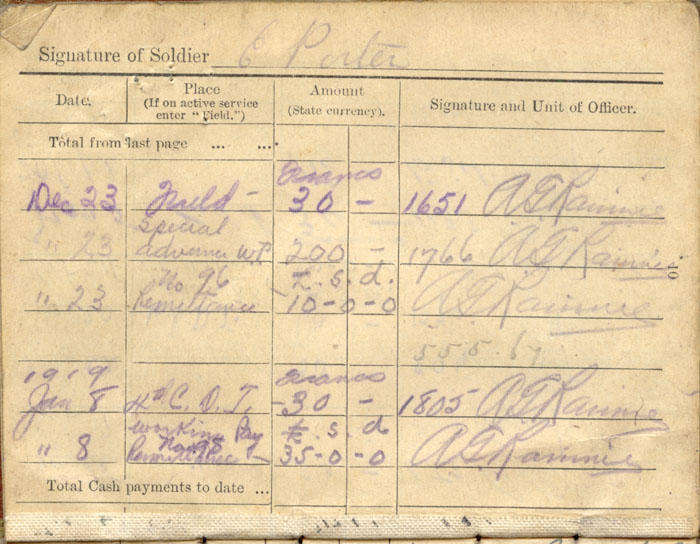 Signature of Soldier E Porter
Date. Place (If on active service enter "Field.") Amount (State currency). Signature and Unit of Officer.
Total from last page ... ....
Francs
Dec 23 Field - 30 - 1651 A G Rainnie
Special
" 23 advance W.P. 200 - 1766 A G Rainnie
No 96 £. s. d.
" 23 Remittance 10-0-0 A G Rainnie
10
555.67
1919 Francs
Jan 8 C. D. T. -30 - 1805 A G Rainnie
Working Pay £. s. d
No 98
" 8 Remittance - 35-0-0 A G Rainnie
Total Cash payments to date ...